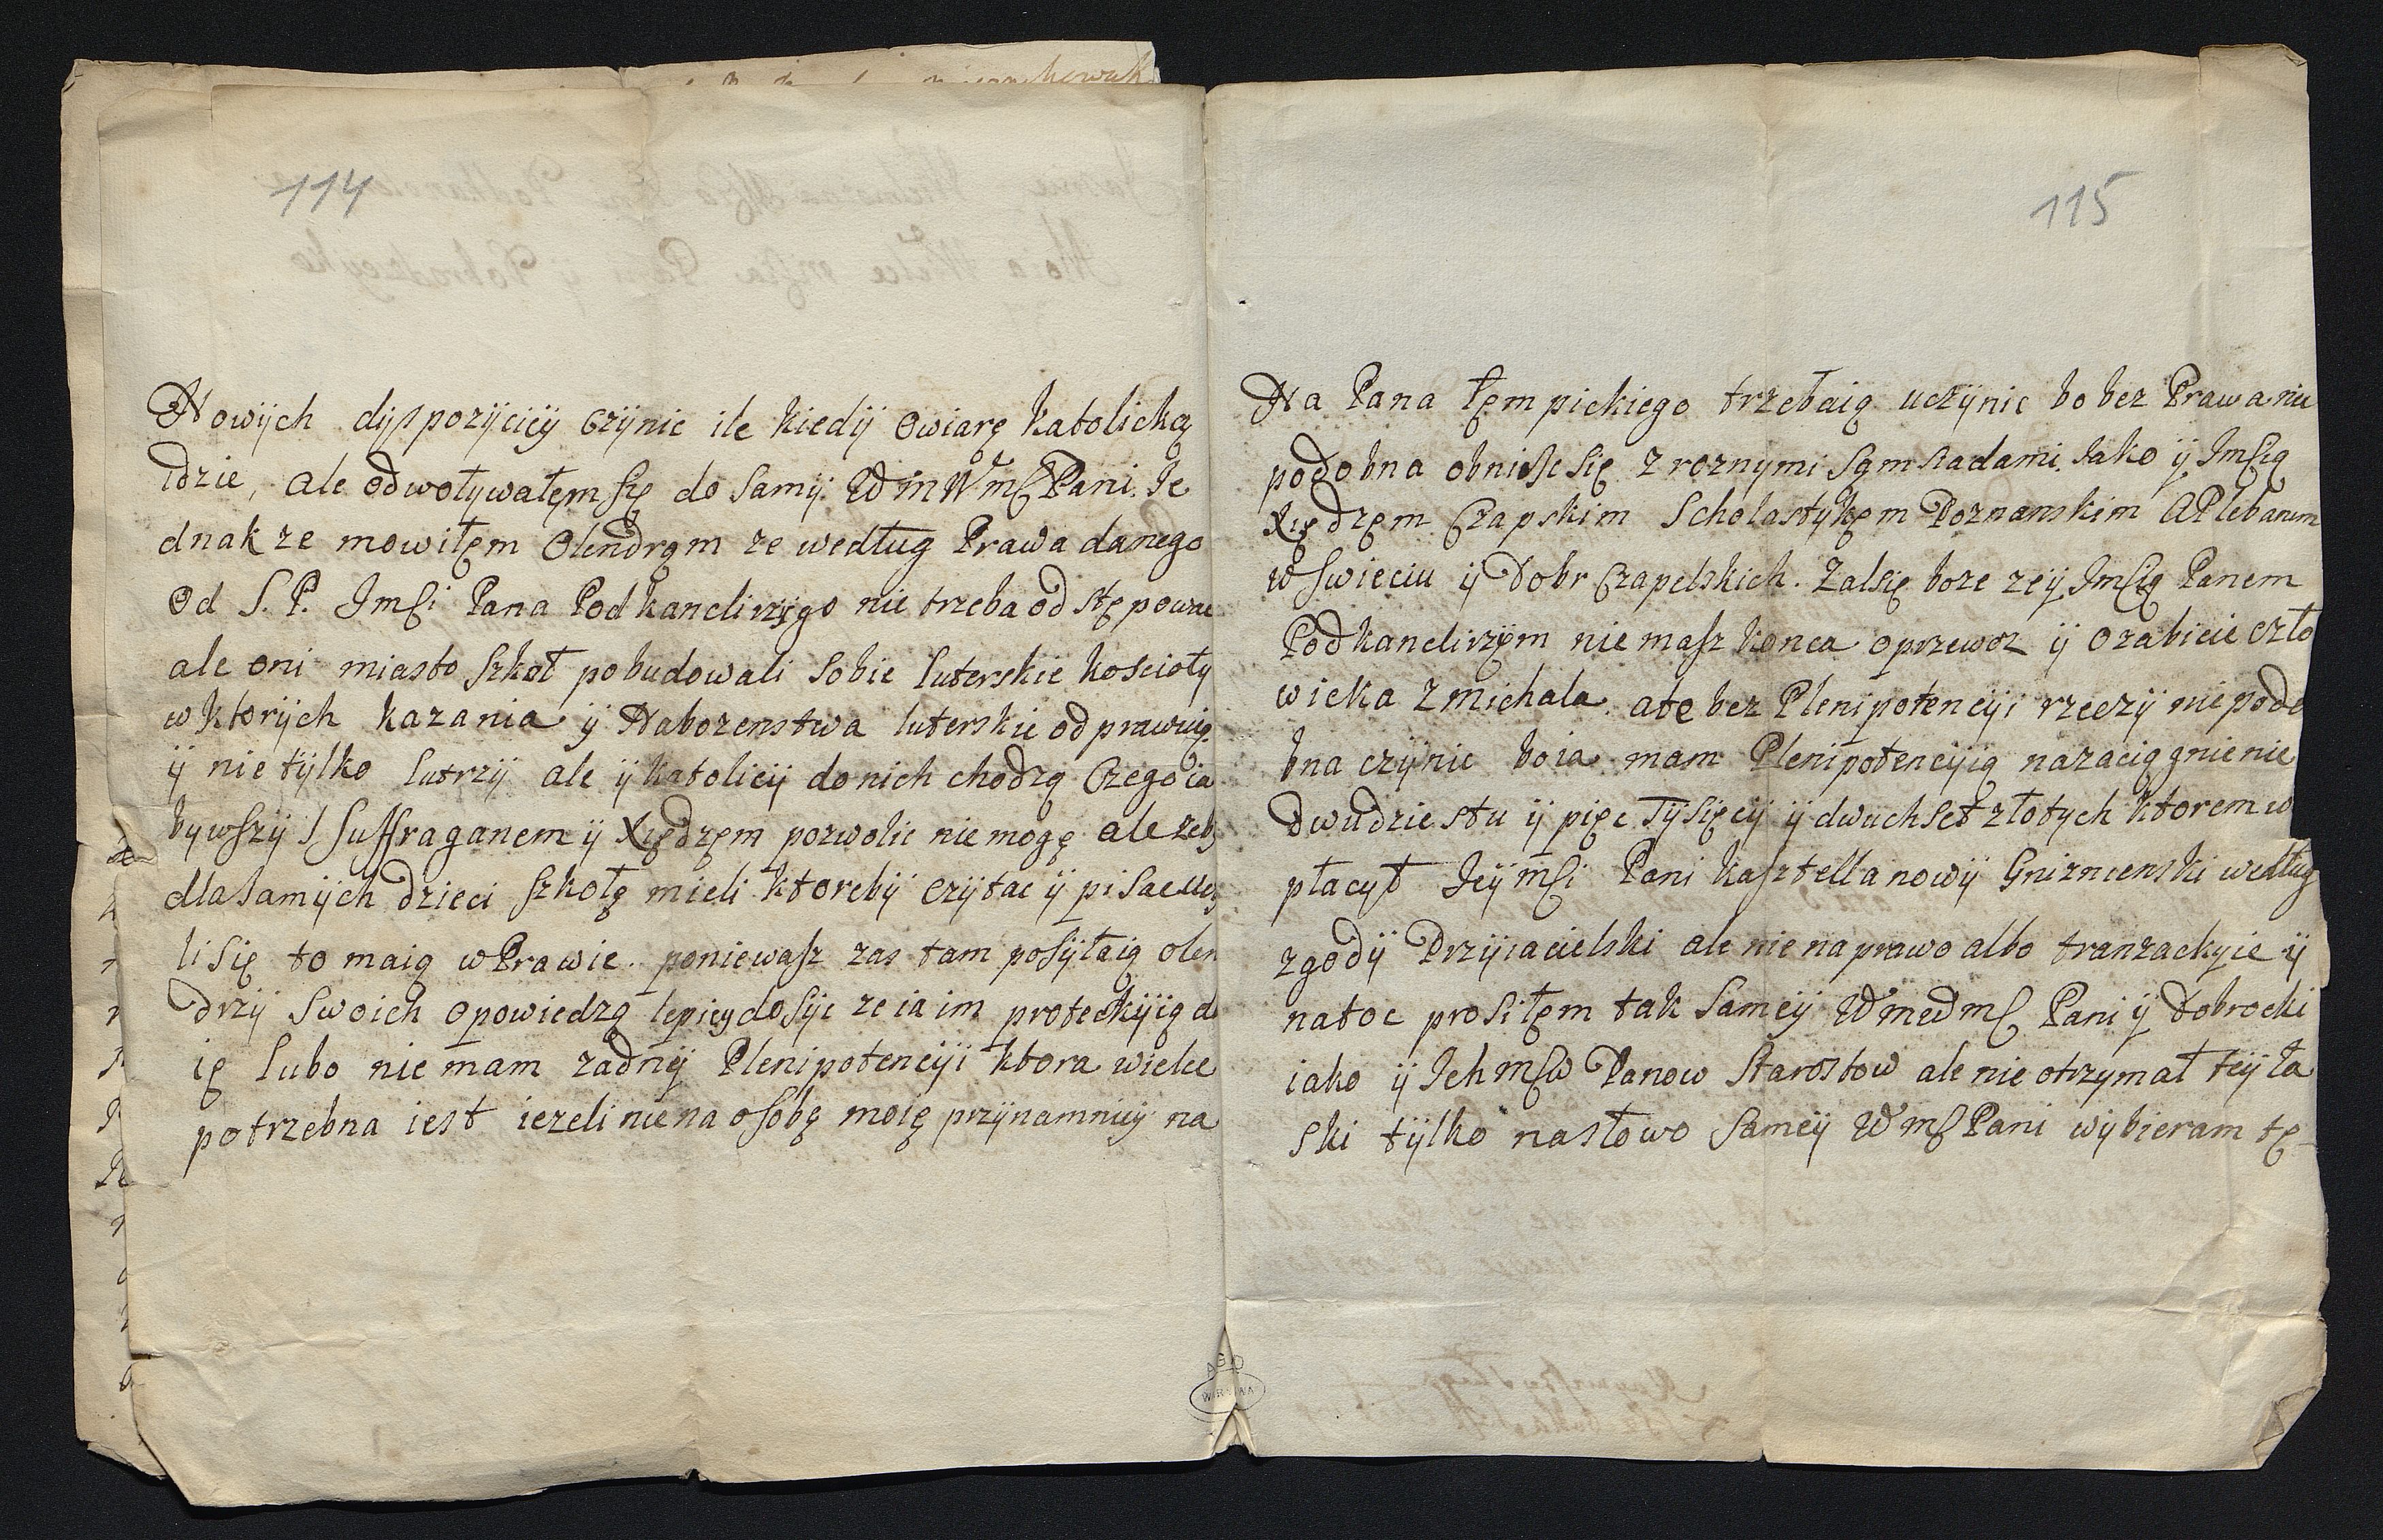 114
Nowÿch dÿspozÿcÿÿ czÿnic ile kiedÿ o wiarę katolicką
idzie, ale odwoływałęm się do samÿ Wm Wmś Pani. Je
dnak ze mowiłęm Olendrom ze według Prawa danego
Od S. P. Jmśi Pana Podkanclirzÿgo nie trzeba odstępowac
ale oni miasto szkoł pobudowali sobie luterskie koscioły
w ktorÿch kazania ÿ Nabozenstwa luterskie odprawuią.
ÿ nie tÿlko lutrzÿ ale ÿ katolicÿ do nich chodzą czego ia
bywszÿ Suffraganem ÿ Xiędzęm pozwolic nie mogę ale zeb
dla samÿch dzieci szkołę mieli ktorebÿ czÿtac ÿ pisac ucz
li się to maią w Prawie. poniewasz zas tam posÿłaią olen
drzÿ swoich opowiedzą lepiey dosÿc ze ia im protekcÿią d
ię lubo nie mam zadnÿ Plenipotencÿi ktora wielce
potrzebna iest iezeli nie na osobę moię przÿnamnieÿ na
115
Na Pana Łęmpickiego trzeba ią uczÿnic bo bez Prawa nie
podobna obniesc się z roznymi sąmsiadami. Jako ÿ Jmśią
Xiędzęm Czapskim Scholastÿkęm Poznanskim A Plebanem
w Swieciu ÿ Dobr Czapelskich. Zal się boze ze ÿ Jmśią Panem
Podkanclirzÿm nie masz konca o przewoz ÿ o zabicie czło
wieka z Michala. ale bez Plenipotencÿi rzeczÿ nie podo
bna czÿnic bo ia mam Plenipotencÿią na zaciągnienie
dwudziestu ÿ pięc Tÿsięcÿ ÿ dwuchset złotych ktorem w
płacył Jeÿmśi Pani Kasztellanowÿ Gnizniensky według
zgodÿ Przÿiacielski ale nie na prawo albo tranzackyie ÿ
na toc prosiłęm tak sameÿ Wmewmś Pani ÿ Dobrocki
iako ÿ Jchmśw Panow Starostow ale nie otrzymał teÿ ła
ski tÿlko na słowo sameÿ Wmś Pani wÿbieram tę
AGAD
WARSZAWA